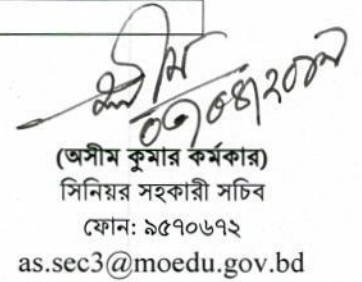 (অসীম কুমার কর্মকার)
সিনিয়র সহকারী সচিব
ফোন: ৯৫৭০৬৭২
as.sec3@moedu.gov.bd